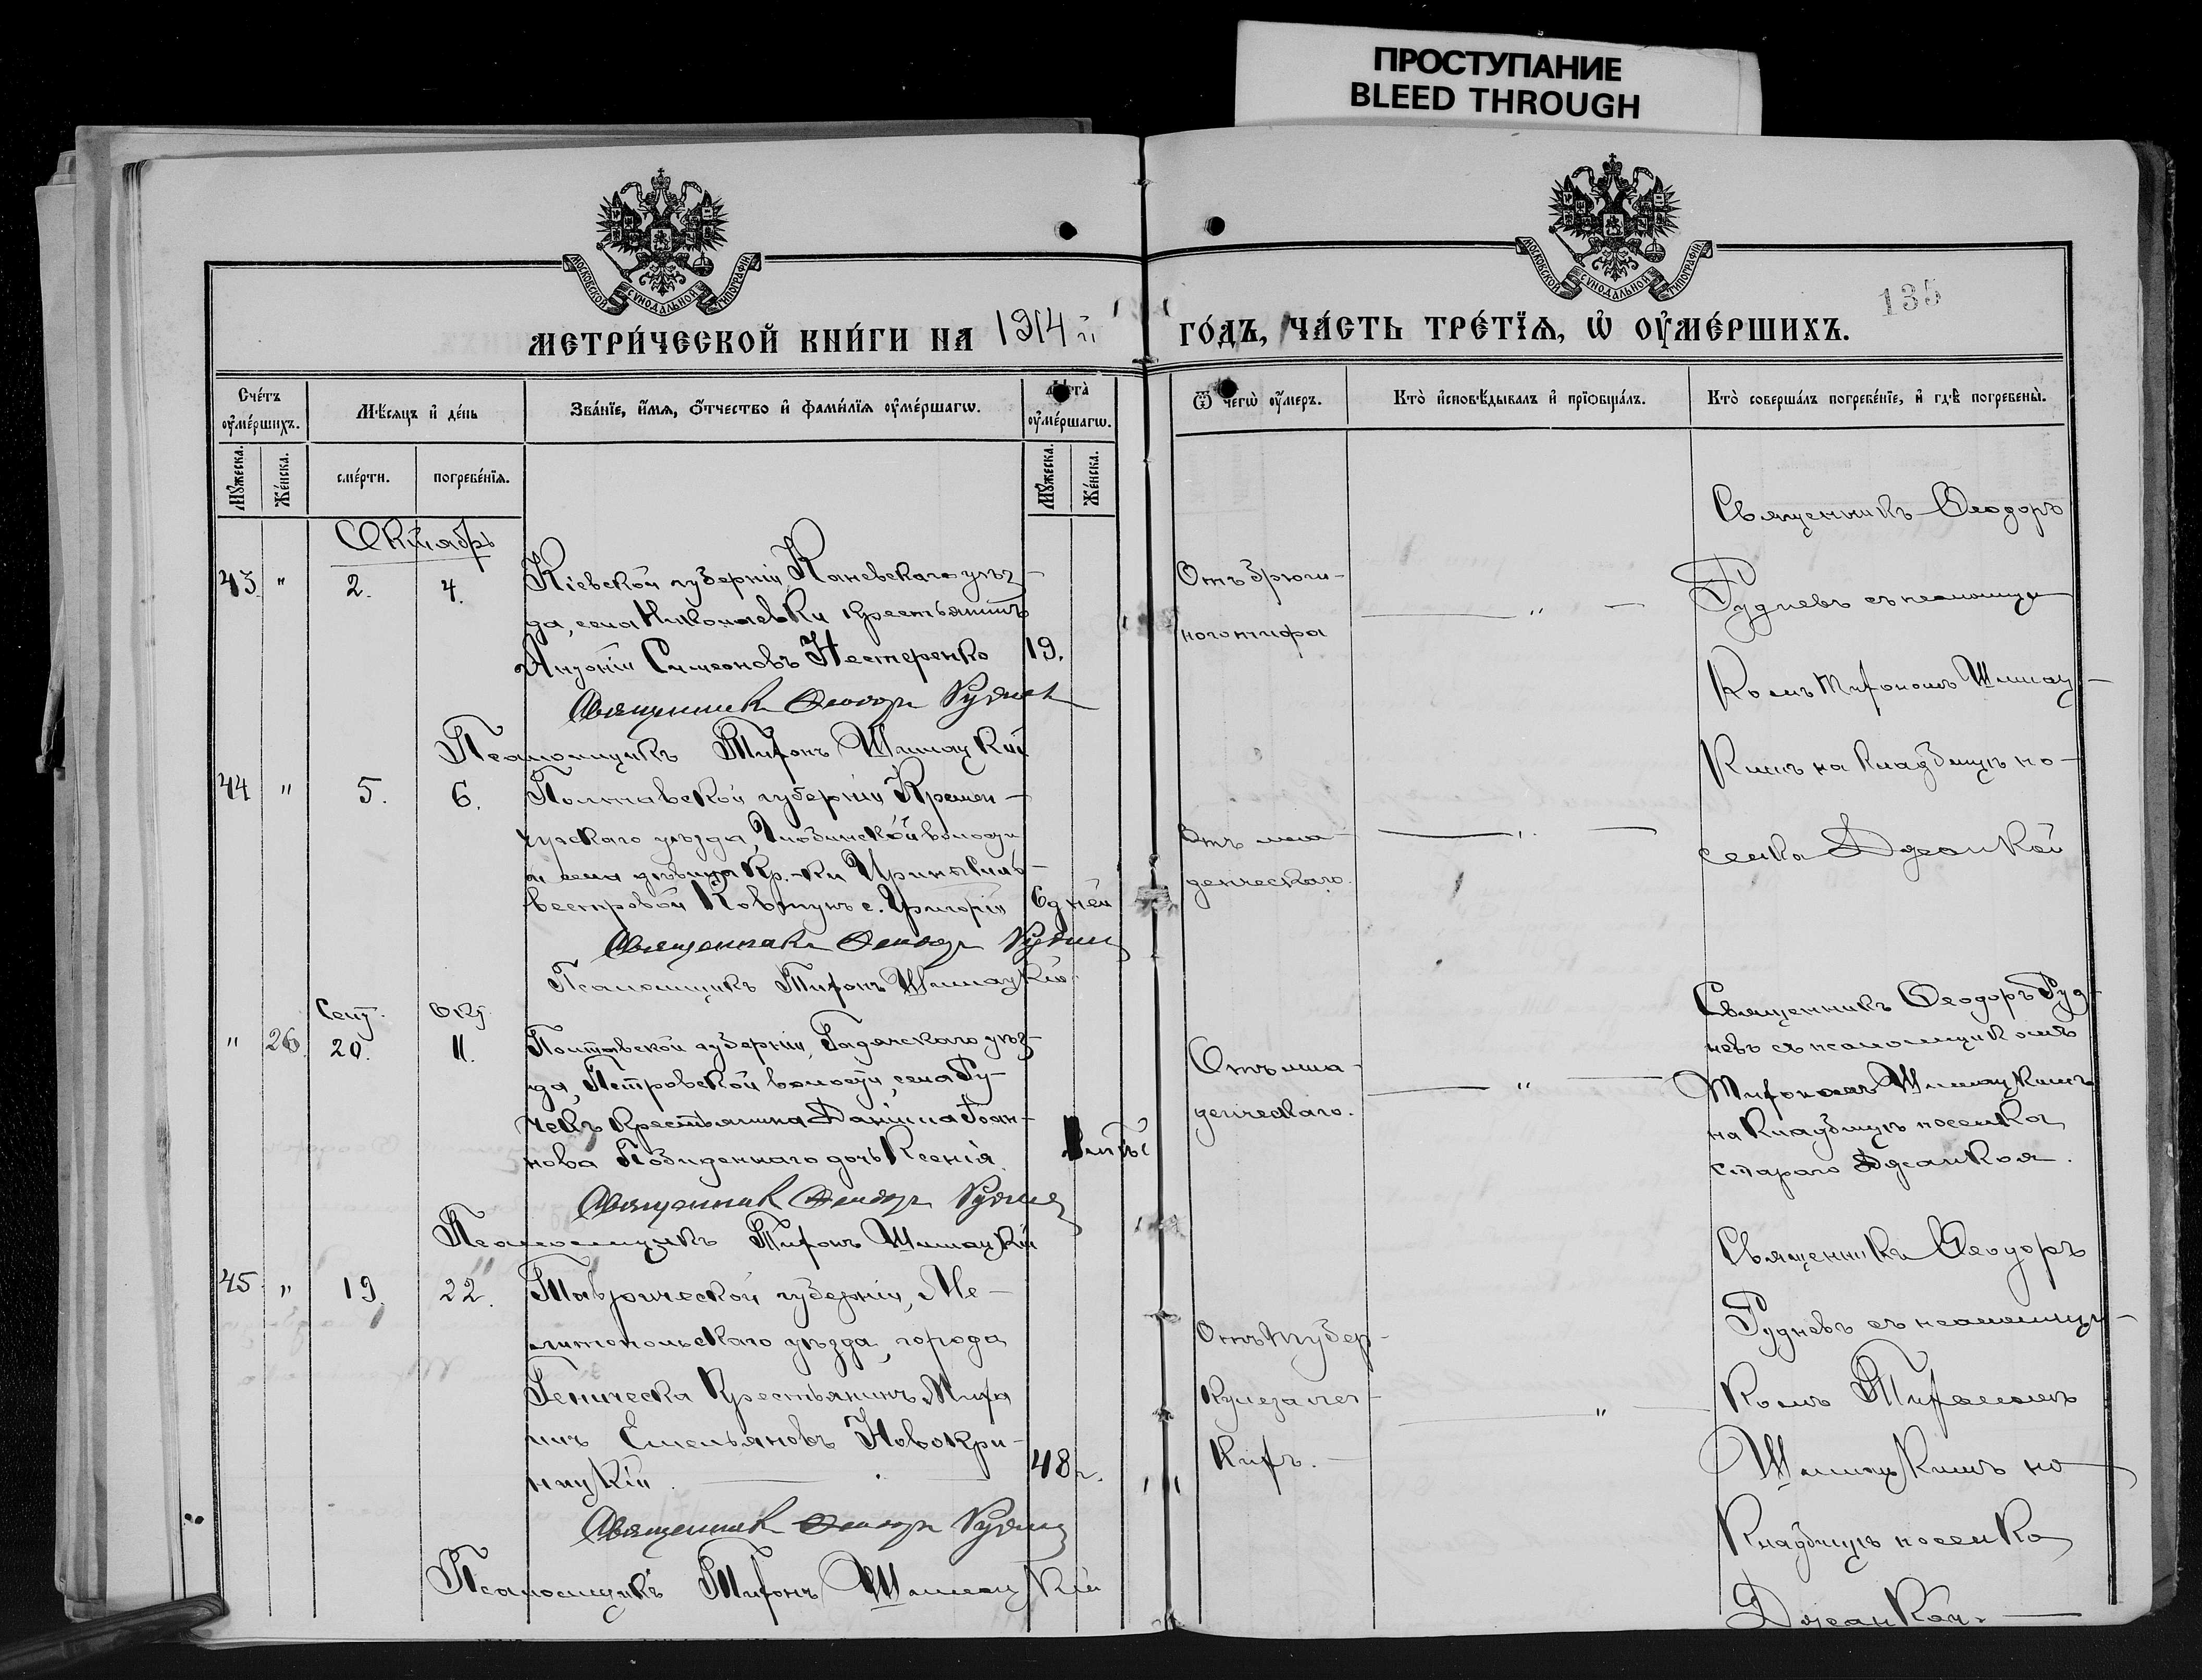 ПРОСТУПАНИЕ
BLEED THROUGH
МОСКОВСКОЙ СѴНОДАЛЬНОЙ ТИПОГРАФІИ
МОСКОВСКОЙ СѴНОДАЛЬНОЙ ТИПОГРАФІИ
135
МЕТРИ́ЧЕСКОЙ КНИ́ГИ НА 1914 й
ГО́ДЪ, ЧА́СТЬ ТРЕ́ТЇѦ, Ѡ҆ ОУ҆МЕ́РШИХЪ.
Сче́тъ оу҆ме́ршихъ.
Мѣ́сяцъ и҆ де́нь
Зва́нїе, и҆́мя, ѻ҆́тчество и҆ фами́лїя оу҆ме́ршагѡ.
Лѣта̀ оу҆ме́ршагѡ.
Ѿ чегѡ̀ оу҆́меръ.
Кто̀ и҆сповѣ́дывалъ и҆ прїѡбща́лъ.
Кто̀ соверша́лъ погребе́нїе, и҆ гдѣ̀ погребены̀.
Мꙋ́жеска.
Же́нска.
сме́рти.
погребе́нїя.
Мꙋ́жеска.
Же́нска.
Октябрь
43. " 2. 4. Кіевской губерніи, Каневскаго уѣз-
да, села Николаевки крестьянинъ
Симеоновъ Нестеренко 19.
Священникъ Ѳеодоръ Руднев
Псаломщикъ Тихонъ Шишацкій
Отъ брюш-
ного тифа
"
Священникъ Ѳеодоръ
Рудневъ съ псаломщи
комъ Тихономъ Шишац-
кимъ на кладбищѣ по-
селка Джанкой
44 " 5. 6. Полтавской губерніи Кремен-
чугскаго уѣзда, Глобинской волости
и села дѣвицы кр.-ки Ирины Силь-
вестровой Ковтунъ с. Григорій 6 дней
Священникъ Ѳеодоръ Руднев
Псаломщикъ Тихонъ Шишацкій
Отъ мла-
денческаго.
Сент. Окт.
" 26. 20. 11. Полтавской губерніи, Гадячскаго уѣз-
да, Петровской волости, села Ру-
крестьянина Даніила Іоан-
нова дочь Ксенія
Священник Ѳеодоръ Руднев
Псаломщикъ Тихонъ Шишацкій
Отъ мла-
денческаго.
"
Священникъ Ѳеодоръ Руд-
невъ съ псаломщикомъ
Тихономъ Шишацкимъ
на кладбищѣ поселка
стараго Джанкоя.
45 " 19. 22. Таврической губерніи, Ме-
литопольскаго уѣзда, города
Геническа крестьянинъ Миха
илъ Емельяновъ Новокри-
ницкій. 48 л.
Священник Ѳеодоръ Руднев
Псаломщикъ Тихонъ Шишацкій
Отъ тубер-
кулеза лег-
кихъ.
"
Священникъ Ѳеодоръ
Рудневъ съ псаломщи-
комъ Тихономъ
Шишацкимъ на
кладбищѣ поселка
Джанкой.